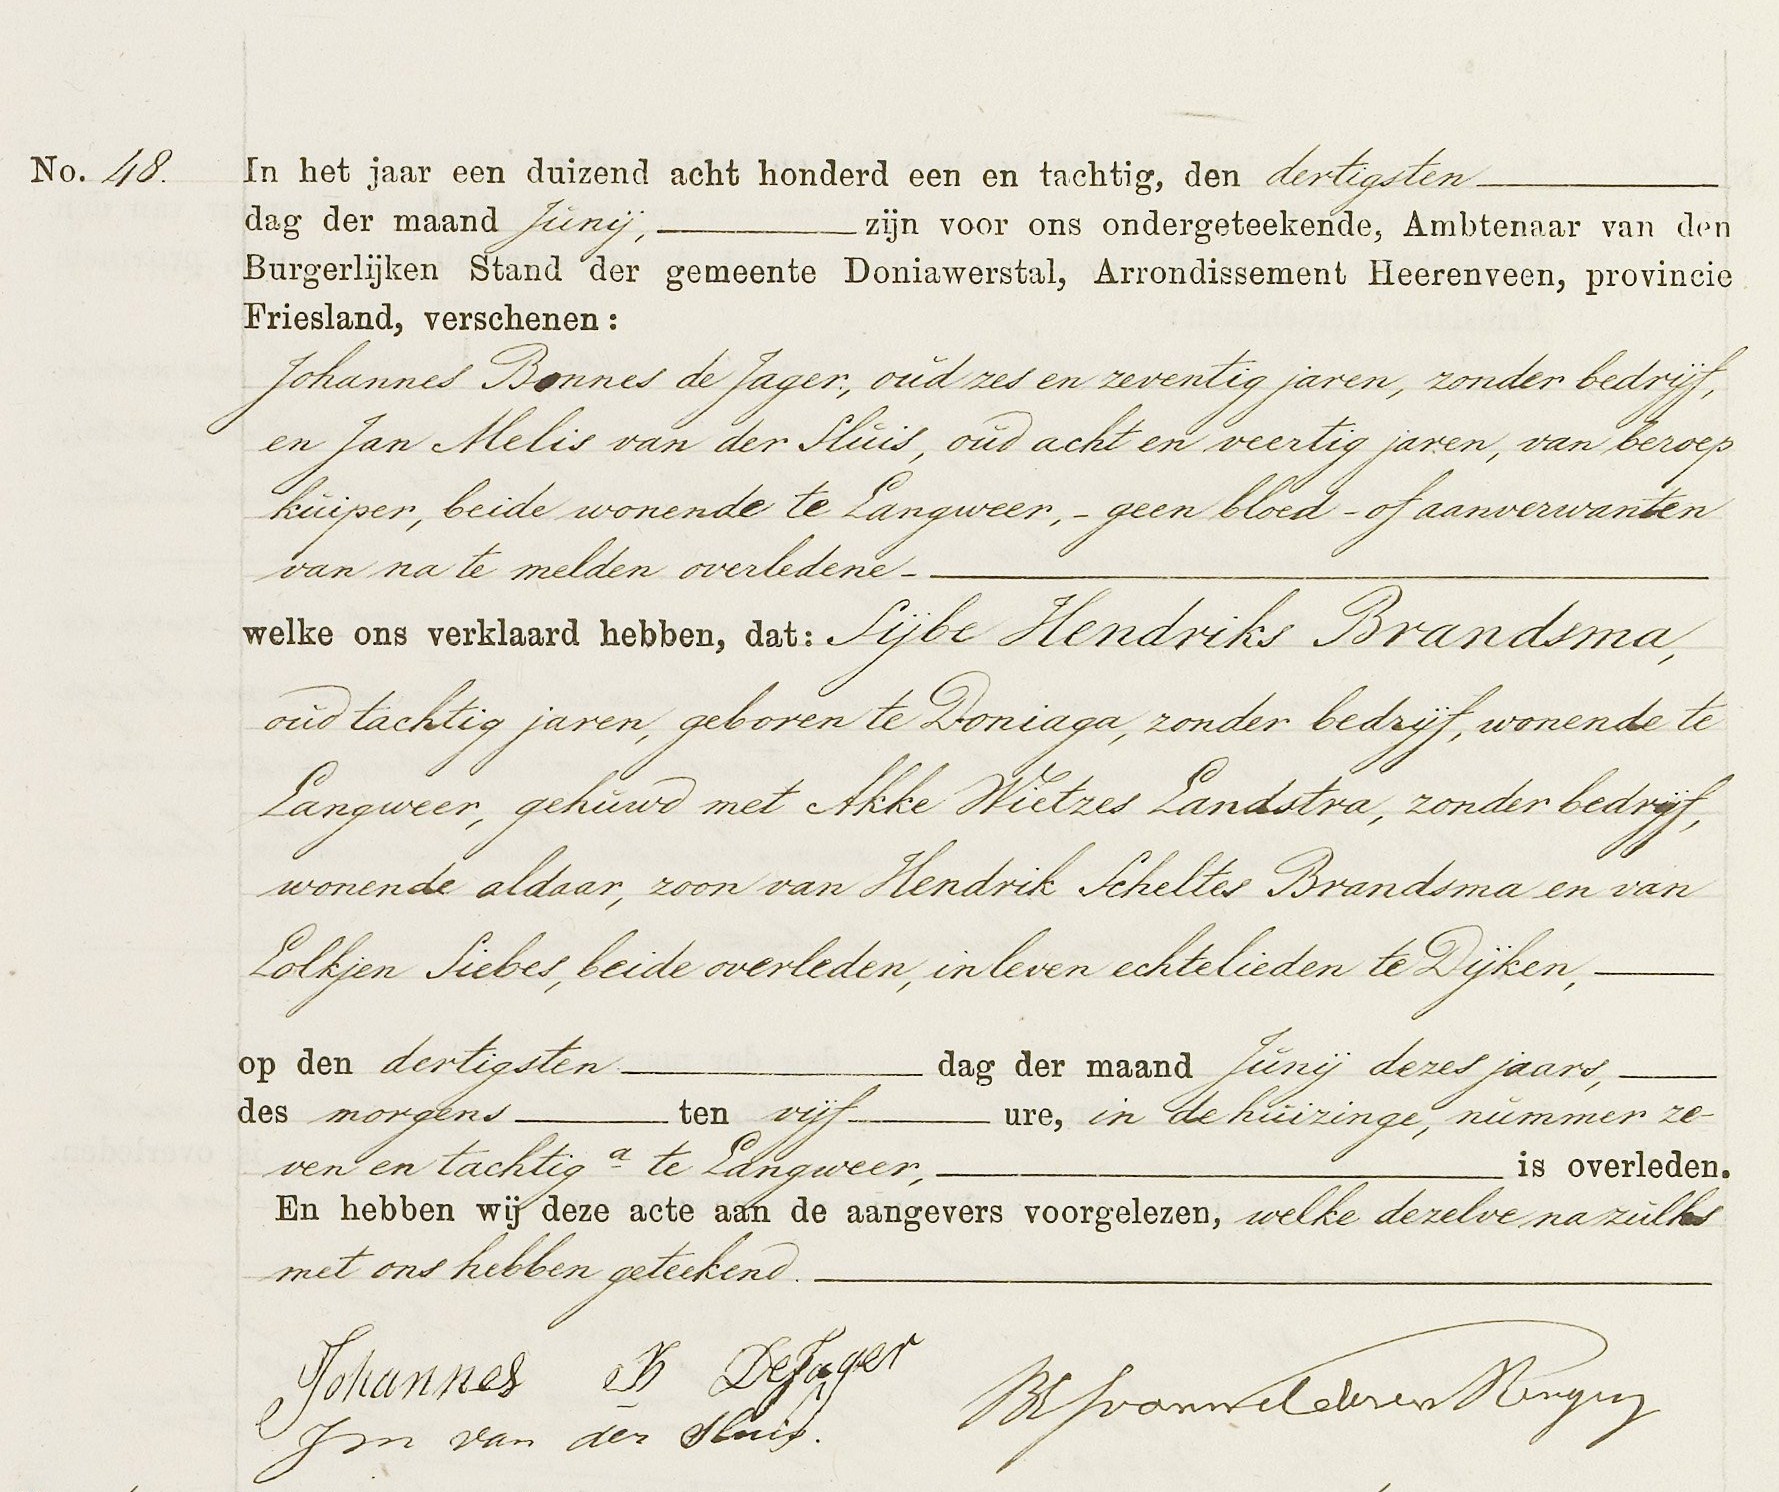 No. 48. In het jaar een duizend acht honderd een en tachtig, den dertigsten
dag der maand Junij, zijn voor ons ondergeteekende, Ambtenaar van den
Burgerlijken Stand der gemeente Doniawerstal, Arrondissement Heerenveen, provincie
Friesland, verschenen:
Johannes Bonnes de Jager, oud zes en zeventig jaren, zonder bedrijf,
en Jan Melis van der Sluis, oud acht en veertig jaren, van beroep
kuiper, beide wonende te Langweer, - geen bloed - of aanverwanten
van na te melden overledene -
welke ons verklaard hebben, dat: Sijbe Hendriks Brandsma,
oud tachtig jaren, geboren te Doniaga, zonder bedrijf, wonende te
Langweer, gehuwd met Akke Wietzes Landstra, zonder bedrijf,
wonende aldaar, zoon van Hendrik Scheltes Brandsma en van
Lolkjen Siebes, beide overleden, in leven echtelieden te Dijken,
op den dertigsten dag der maand Junij dezes jaars,
des morgens ten vijf ure, in de huizinge, nummer ze-
ven en tachtig a te Langweer, is overleden.
En hebben wij deze acte aan de aangevers voorgelezen, welke dezelve na zulks
met ons hebben geteekend.
Johannes B De Jager
J m van der Sluis.